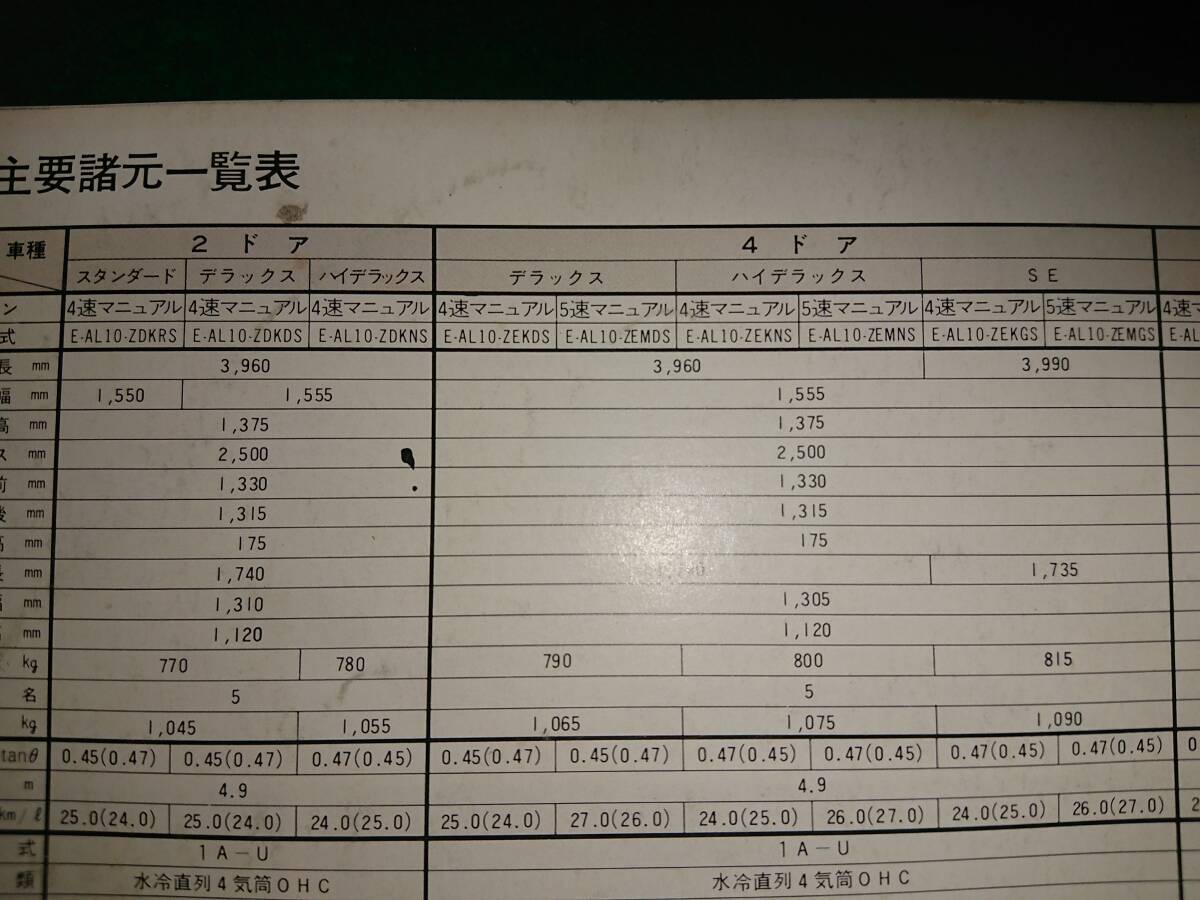 主要諸元一覧表
車種 2ドア 4ドア
スタンダード デラックス ハイデラックス デラックス ハイデラックス SE
ン 4速マニュアル 4速マニュアル 4速マニュアル 4速マニュアル 5速マニュアル 4速マニュアル 5速マニュアル 4速マニュアル 5速マニュアル 4速マ
式 E-AL10-ZDKRS E-AL10-ZDKDS E-AL10-ZDKNS E-AL10-ZEKDS E-AL10-ZEMDS E-AL10-ZEKNS E-AL10-ZEMNS E-AL10-ZEKGS E-AL10-ZEMGS E-AL
長 mm 3,960 3,960 3,990
幅 mm 1,550 1,555 1,555
高 mm 1,375 1,375
ス mm 2,500 2,500
前 mm 1,330 1,330
後 mm 1,315 1,315
高 mm 175 175
長 mm 1,740 1,735
幅 mm 1,310 1,305
高 mm 1,120 1,120
kg 770 780 790 800 815
名 5 5
kg 1,045 1,055 1,065 1,075 1,090
tanθ 0.45(0.47) 0.45(0.47) 0.47(0.45) 0.45(0.47) 0.45(0.47) 0.47(0.45) 0.47(0.45) 0.47(0.45) 0.47(0.45) 0
m 4.9 4.9
km/ℓ 25.0(24.0) 25.0(24.0) 24.0(25.0) 25.0(24.0) 27.0(26.0) 24.0(25.0) 26.0(27.0) 24.0(25.0) 26.0(27.0) 2
式 1A-U 1A-U
類 水冷直列4気筒OHC 水冷直列4気筒OHC